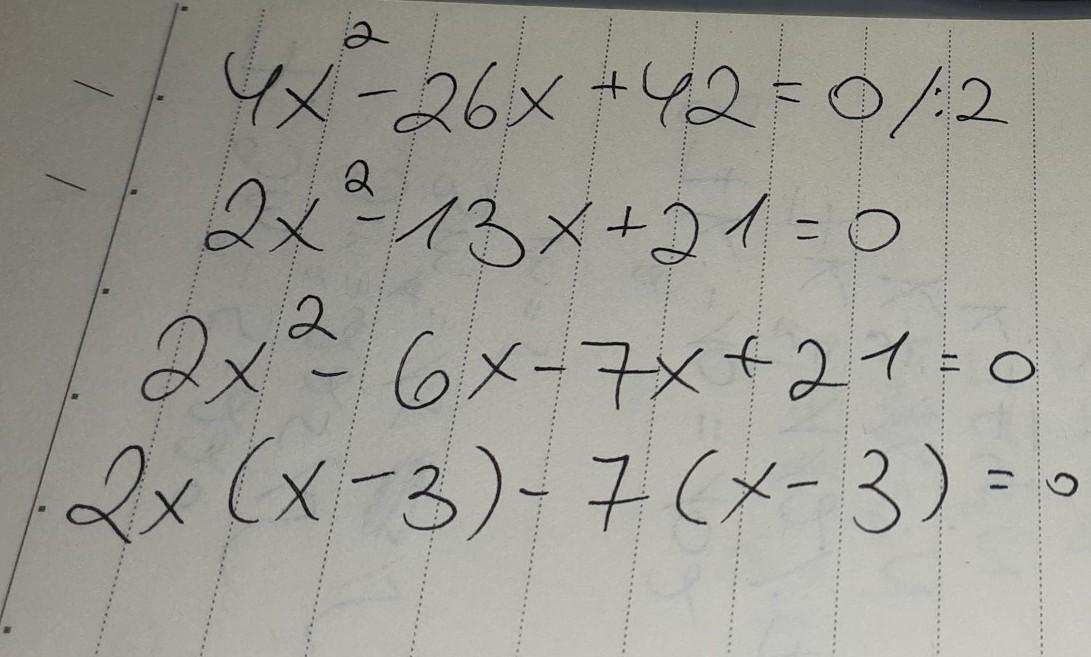 4x² - 26x + 42 = 0 /:2
2x² - 13x + 21 = 0
2x² - 6x - 7x + 21 = 0
2x (x - 3) - 7 (x - 3) = 0